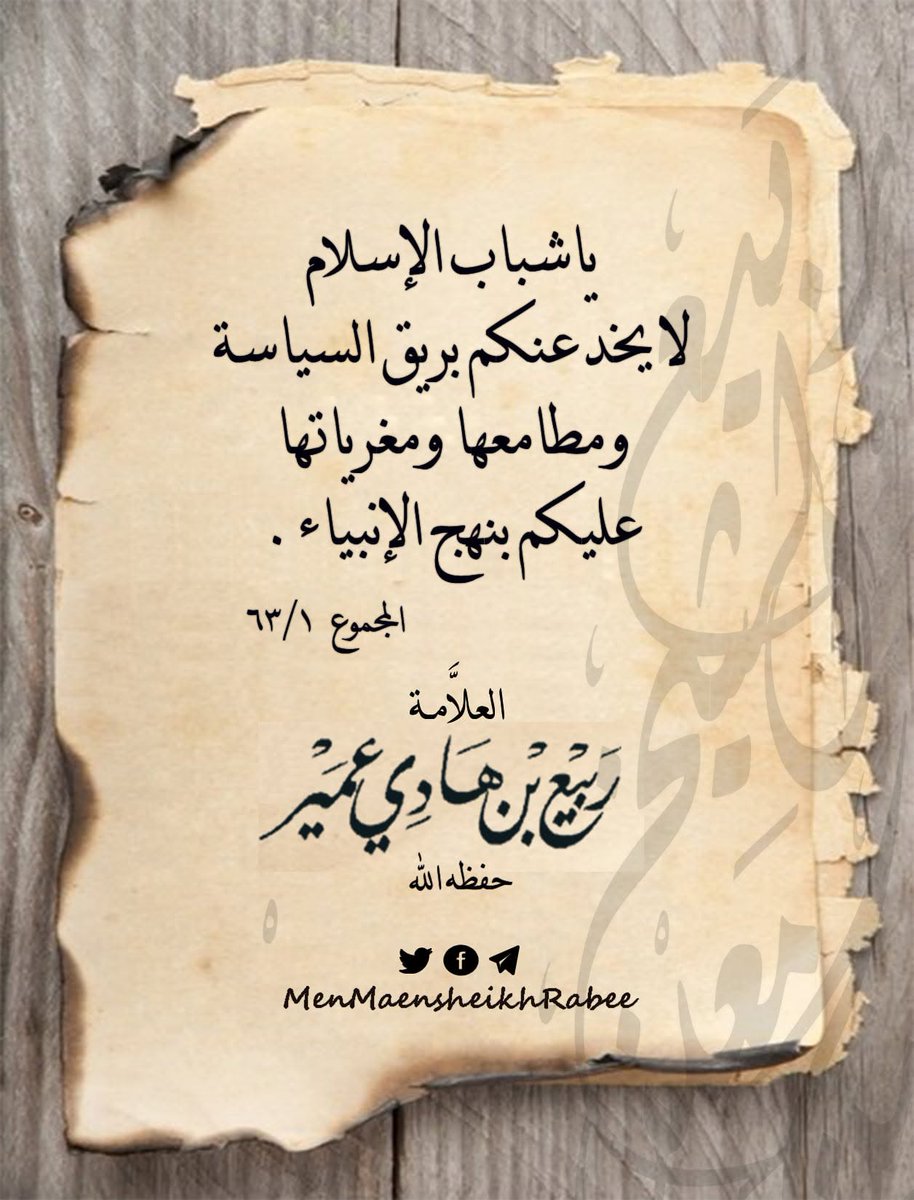 ياشباب الإسلام
لايخدعنكم بريق السياسة
ومطامعها ومغرياتها
عليكم بنهج الإنبياء .
المجموع ٦٣/١
العلاَّمة
رَبِيْع بْن هَادِي عُمَيْر
حفظه الله
MenMaensheikhRabee